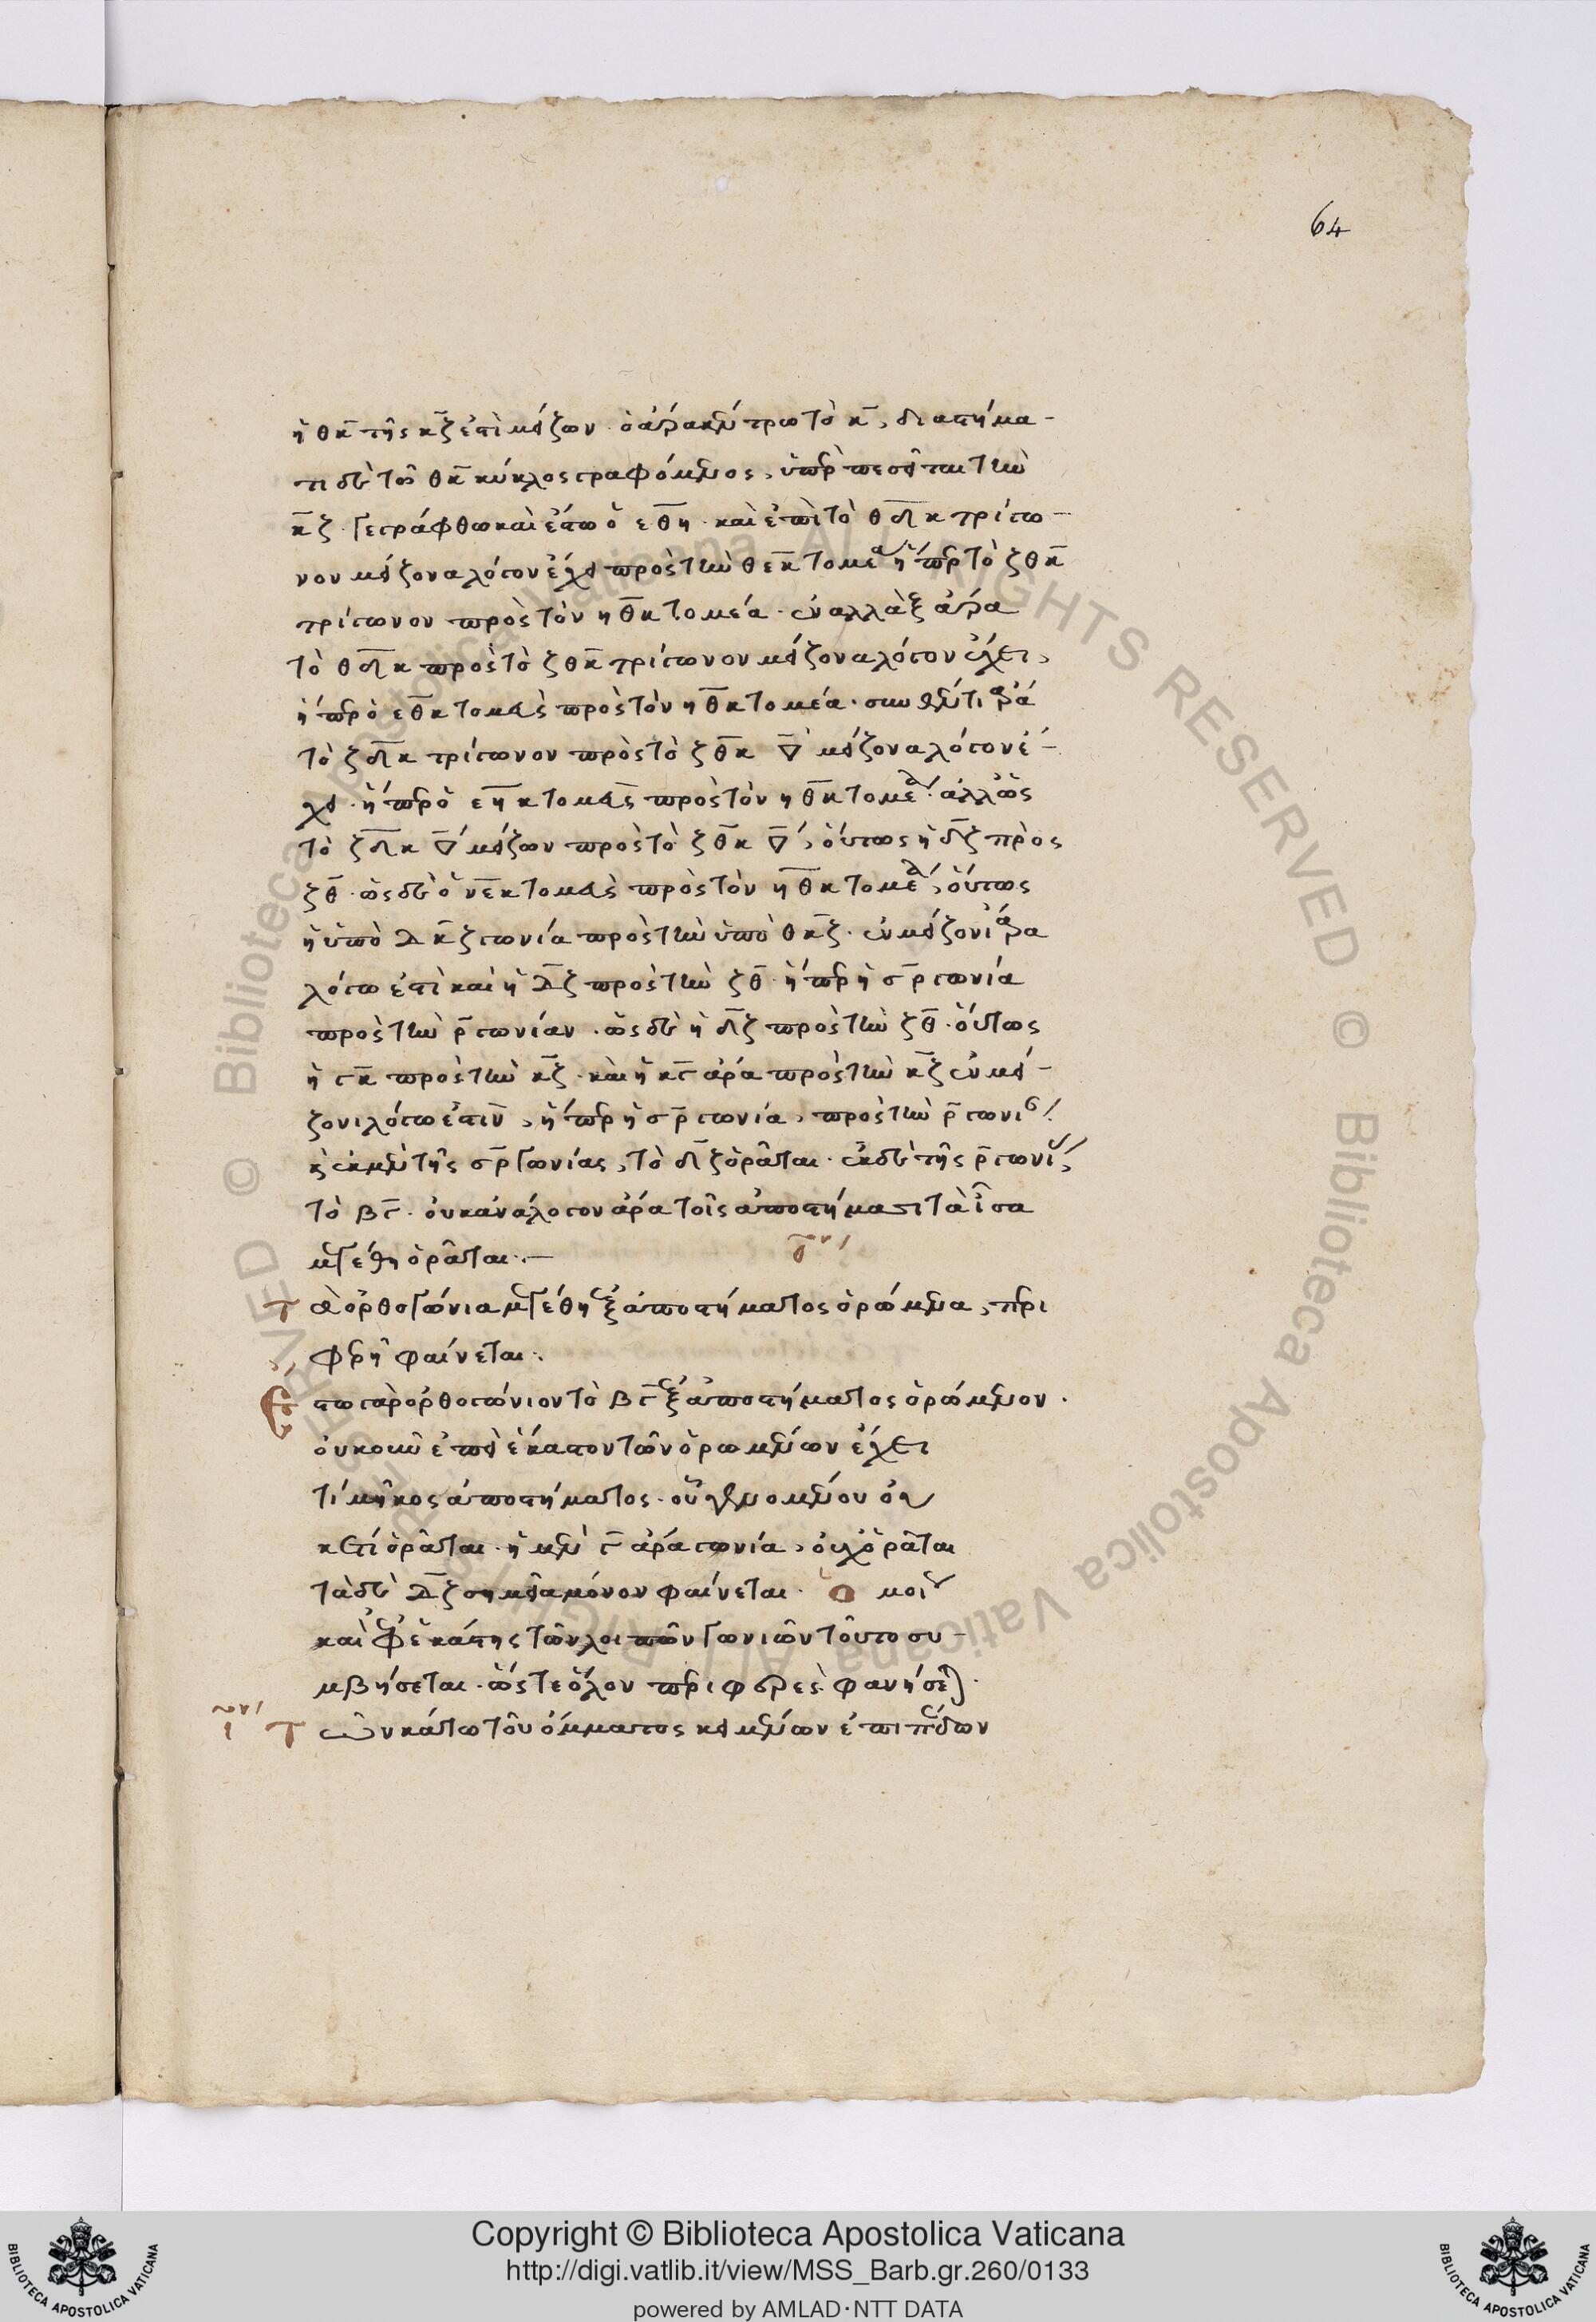 64
ἡ θκ τῆς κζ ἐστὶ μείζων. ὁ ἄρα κέντρω τὸ κ, διαστήμα-
τι δὲ τῶ θκ κύκλος γραφόμενος, ὑπερπεσεῖται τὴν
κζ. γεγράφθω καὶ ἔστω ὁ εθη. καὶ ἐπεὶ τὸ θδκ τρίγω-
νον μείζονα λόγον ἔχει πρὸς τὴν θεκ τομέα ἤπερ τὸ ζθκ
τρίγωνον πρὸς τὸν ηθκ τομέα. ἐναλλὰξ ἄρα
τὸ θδκ πρὸς τὸ ζθκ τρίγωνον μείζονα λόγον ἔχει,
ἤπερ ὁ εθκ τομεὺς πρὸς τὸν ηθκ τομέα. συνθέντι ἄρα
τὸ ζδκ τρίγωνον πρὸς τὸ ζθκ ▽ μείζονα λόγον ἔ-
χει. ἤπερ ὁ εηκ τομεὺς πρὸς τὸν ηθκ τομέα. ἀλλ' ὡς
τὸ ζδκ ▽ μείζων πρὸς τὸ ζθκ ▽, οὕτως ἡ δζ πρὸς
ζθ. ὡς δὲ ὁ νεκ τομεὺς πρὸς τὸν ηθκ τομέα, οὕτως
ἡ ὑπὸ δκζ γωνία πρὸς τὴν ὑπὸ θκζ. ἐν μείζονι ἄρα
λόγω ἐστὶ καὶ ἡ δζ πρὸς τὴν ζθ. ἤπερ ἡ σρ γωνία
πρὸς τὴν ρ γωνίαν. ὡς δὲ ἡ δζ πρὸς τὴν ζθ. οὕτως
ἡ γκ πρὸς τὴν κζ. καὶ ἡ κγ ἄρα πρὸς τὴν κζ ἐν μεί-
ζονι λόγω ἐστὶν, ἤπερ ἡ σρ γωνία, πρὸς τὴν ρ γωνίαν.
κ ἐκ μὲν τῆς σρ γωνίας, τὸ δζ ὁρᾶται. ἐκ δὲ τῆς ρ γωνίας,
τὸ βγ. οὐκ ἀνάλογον ἄρα τοῖς ἀποστήμασι τὰ ἴσα
μεγέθη ὁρᾶται.—
Τὰ ὀρθογώνια μεγέθη ἐξ ἀποστήματος ὁρώμενα, περι
φερῆ φαίνεται.
Ἔστω γὰρ ὀρθογώνιον τὸ βγ ἐξ ἀποστήματος ὁρώμενον.
οὐκοῦν ἐπεὶ ἕκαστον τῶν ὁρωμένων ἔχει
τί μῆκος ἀποστήματος. οὗ γενομένου οὐ
κ ἔτι ὁρᾶται. ἡ μὲν γ ἄρα γωνία, οὐχ ὁρᾶται
τὰ δὲ δζ σημεῖα μόνον φαίνεται. ὁμοίως
καὶ ἐφ' ἑκάστης τῶν λοιπῶν γωνιῶν τοῦτο συ-
μβήσεται. ὥστε ὅλον περιφερὲς φανήσεται.
ι Τῶν κάτω τοῦ ὄμματος κειμένων ἐπιπέδων
Copyright © Biblioteca Apostolica Vaticana
http://digi.vatlib.it/view/MSS_Barb.gr.260/0133
powered by AMLAD·NTT DATA